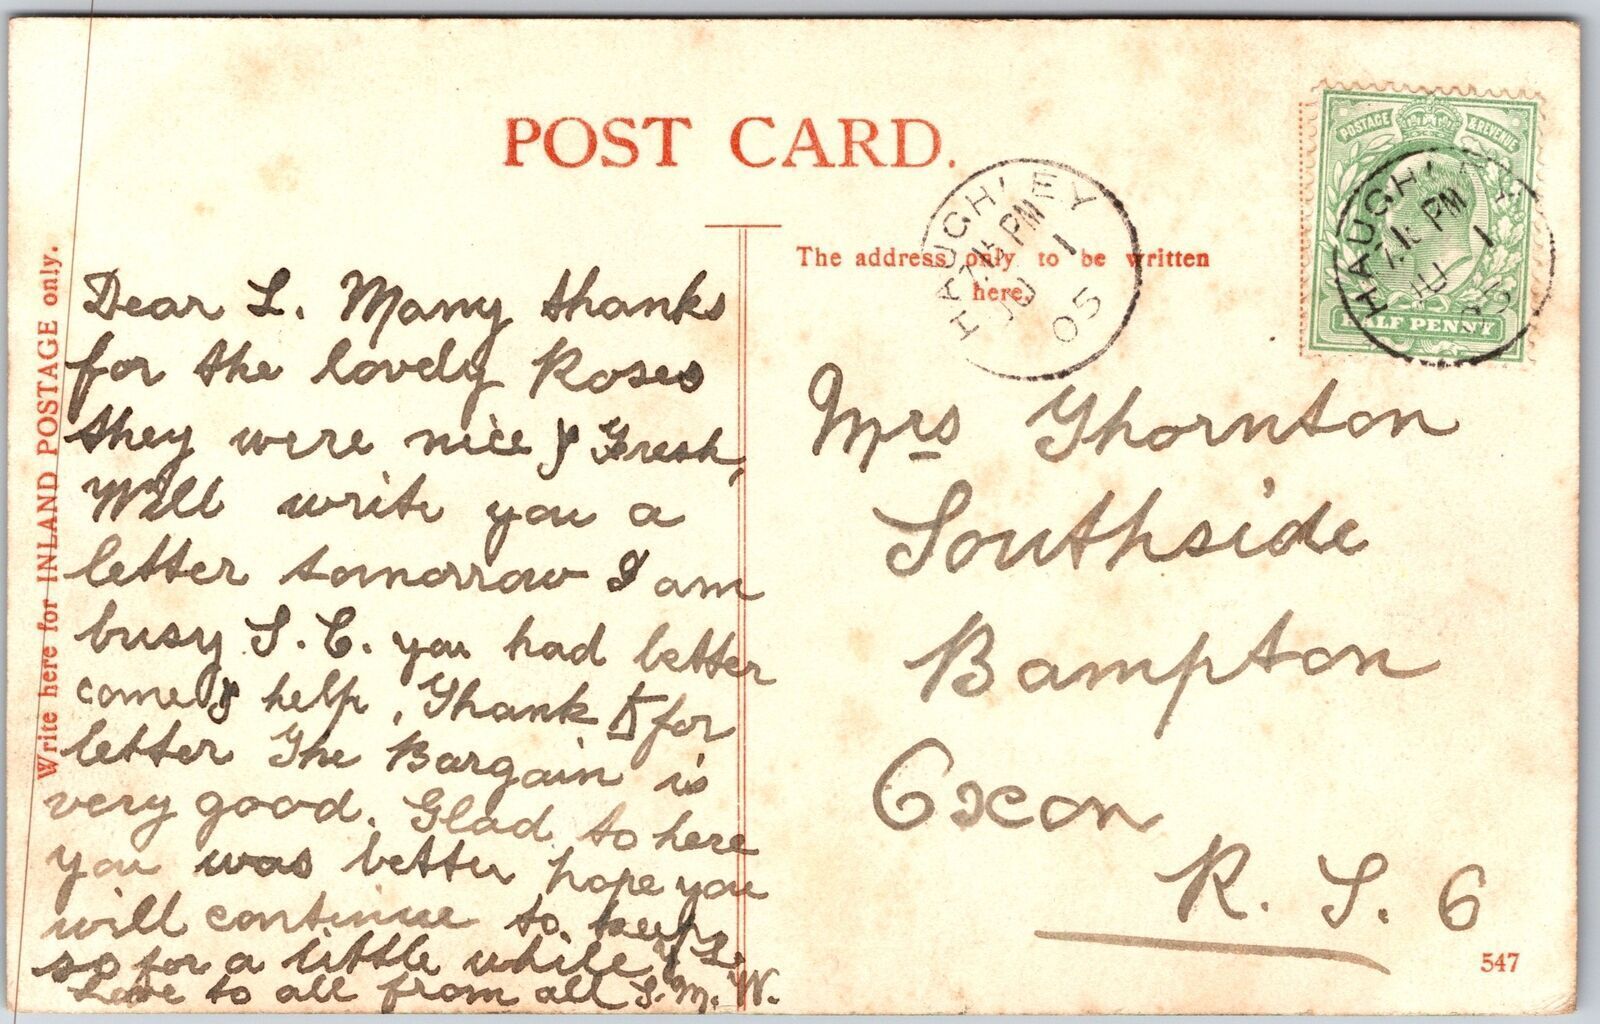 POST CARD.
Write here for INLAND POSTAGE only.
The address only to be written
here.
POSTAGE & REVENUE
HALF PENNY
HAUGHLEY
7.15 PM
JU 1
05
HAUGHLEY
PM
JU 1
05
Dear L. Many thanks
for the lovely Roses
they were nice & Fresh,
Will write you a
letter tomorrow I am
busy S. C. you had better
come & help, Thank for
letter The Bargain is
very good. Glad to here
you was better hope you
will continue to. keep
so for a little while
Love to all from all S. M. W.
Mrs Thornton
Southside
Bampton
Oxon
R. S. 6
547